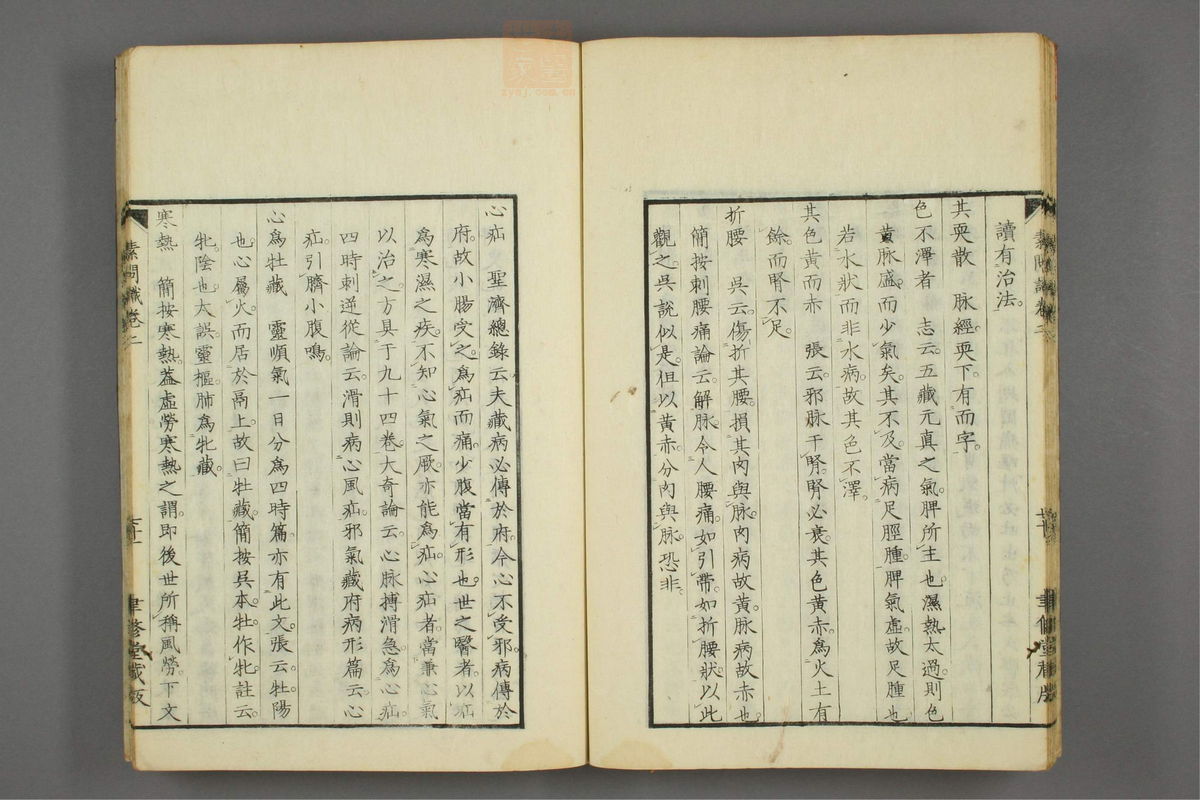 讀有治法。
其耎散　脉經。耎下。有而字。
色不澤者　志云。五藏元真之氣。脾所主也。濕熱太過。則色
黄脉盛。而少氣矣。其不及。當病足脛腫。脾氣虛。故足腫也
若水狀而非水病。故其色不澤。
其色黄而赤　張云。邪脉干腎。腎必衰。其色黄赤。爲火土有
餘。而腎不足。
折腰　吳云。傷折其腰。損其肉與脉。肉病故黄。脉病故赤也
簡按刺腰痛論云。解脉。令人腰痛。如引帶。如折腰狀。以此
觀之。吳說似是。但以黄赤。分肉與脉。恐非。
心疝　聖濟總錄云。夫藏病必傳於府。今心不受邪。病傳於
府。故小腸受之。爲疝而痛。少腹當有形也。世之醫者。以疝
爲寒濕之疾。不知心氣之厥。亦能爲疝。心疝者。當兼心氣
以治之。方具于九十四卷。大奇論云。心脉搏滑急。爲心疝。
四時刺逆從論云。滑則病心風疝。邪氣藏府病形篇云。心
疝。引臍小腹鳴。
心爲牡藏　靈順氣一日分爲四時篇。亦有此文。張云。牡陽
也。心屬火。而居於鬲上。故曰牡藏。簡按吳本。牡。作牝。註云。
牝。陰也。大誤。靈樞。肺爲牝藏。
寒熱　簡按寒熱。蓋虛勞寒熱之謂。即後世所稱風勞。下文
素問識卷二
聿修堂藏版